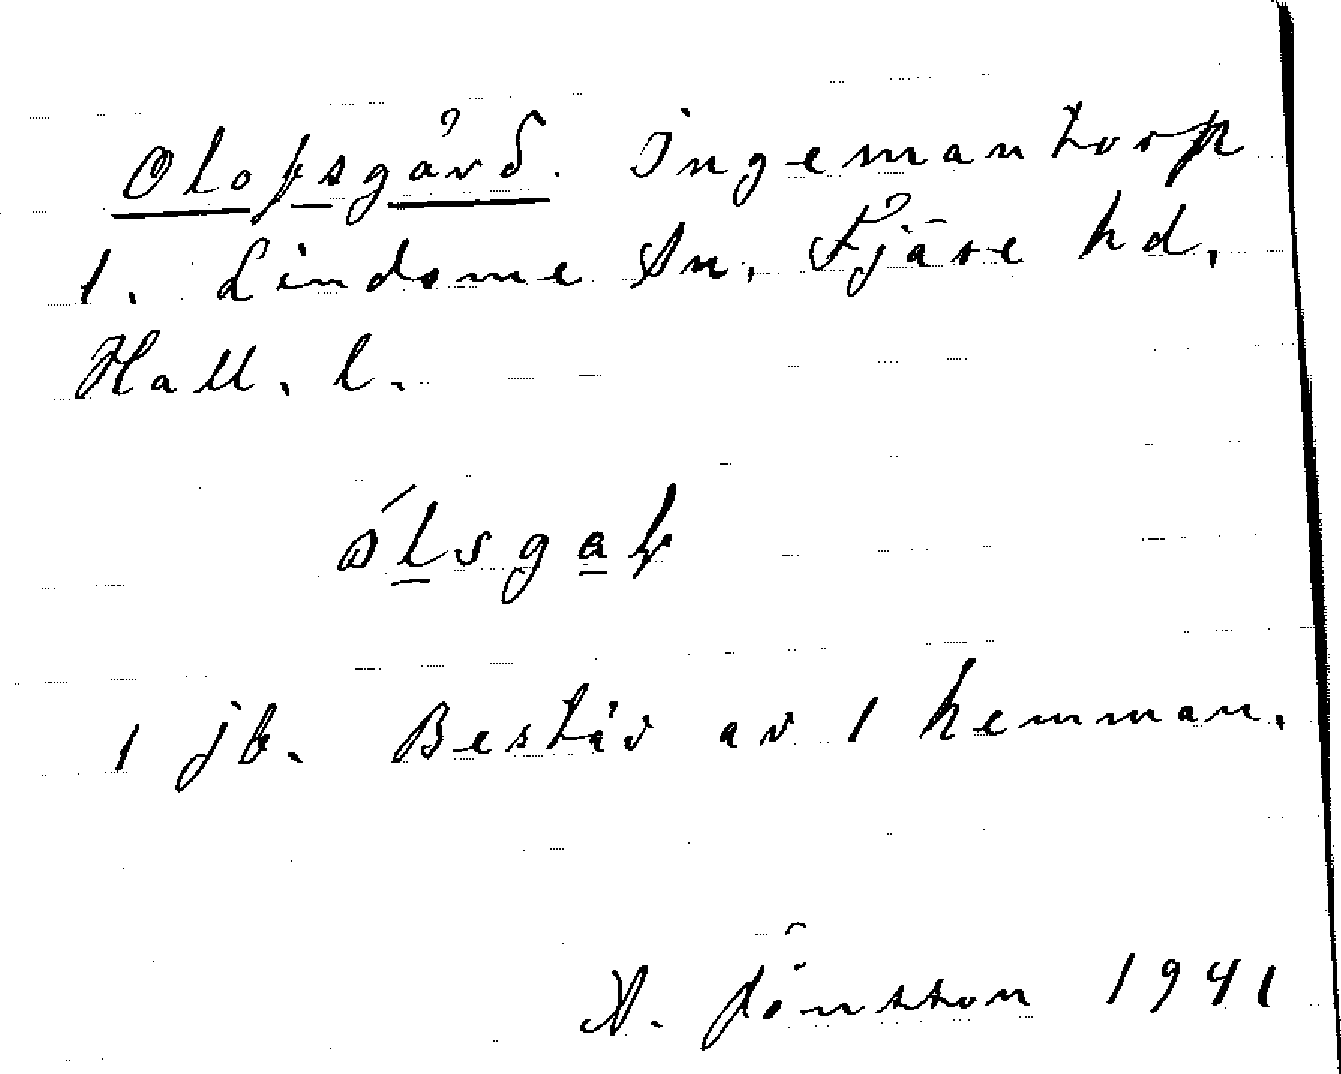 Olofsgård. Ingemantorp
1. Lindome Sn. Fjäre hd.
Hall. l.
1 jb. Består av 1 hemman.
A. Jönsson 1941